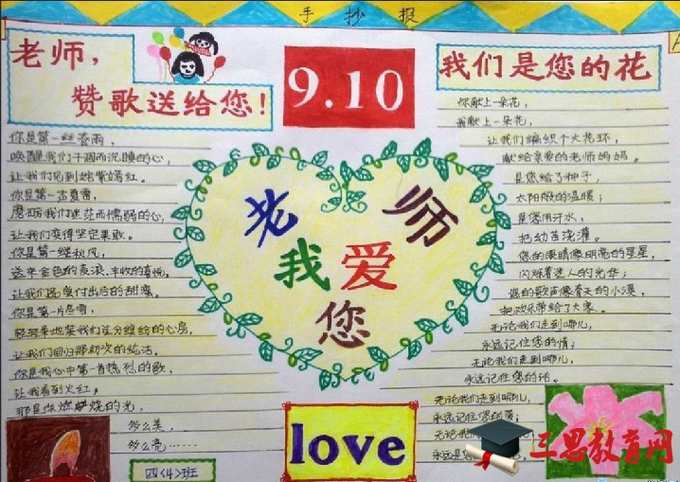 手抄报
老师，
赞歌送给您！
你是第一丝春雨，
唤醒我们干涸而沉睡的心，
让我们见到姹紫嫣红。
你是第一
让我们变得坚定果敢。
你是第一缕秋风，
送来金色的麦浪、丰收的喜悦，
让我们感受付出后的甜蜜。
你是第一片
让我们回归那初次的纯洁。
你是我心中第一首热烈的歌，
让我看到火红，
那是你燃烧的光，
多么美，
多么亮……
四〈4〉班
9.10
老师
我爱
您
love
我们是您的花
你献上一朵花，
我献上一朵花，
让我们编织个大花环，
献给亲爱的老师妈妈。
是您给了种子，
太阳般的温暖；
是您用汗水，
把幼苗浇灌。
您的眼睛像明亮的星星，
闪烁着迷人的光华；
您的歌声像春天的小溪，
把欢乐带给了大家。
无论我们走到哪儿，
永远记住您的情；
无论我们走到哪儿，
永远记住您的话。
无论我们走到哪儿，
永远记住您的
无论我
永远
三思教育网